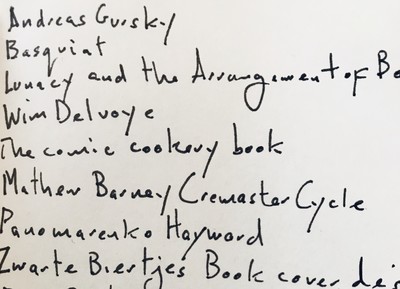 Andreas Gursky
Basquiat
Lunacy and the Arrangement of Bo
Wim Delvoye
The comic cookery book
Mathew Barney Cremaster Cycle
Panomarenko Hayward
Zwarte Biertjes Book cover de